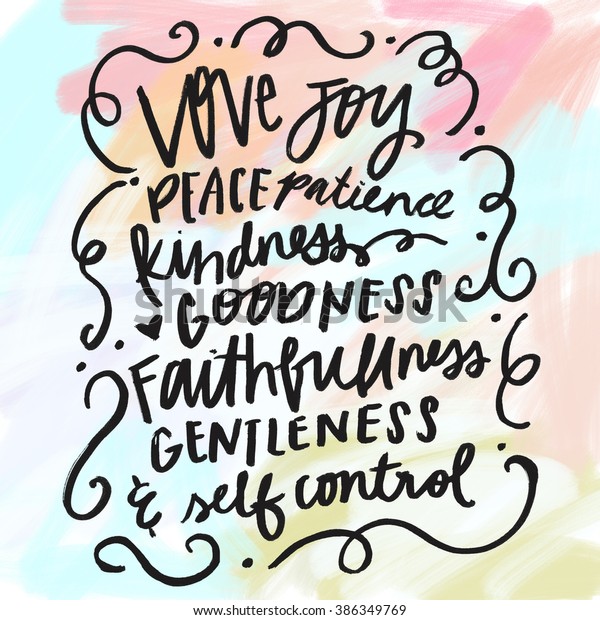 Love Joy
PEACE patience
kindness
GOODNESS
Faithfullness
GENTLENESS
& self control
www.shutterstock.com · 386349769